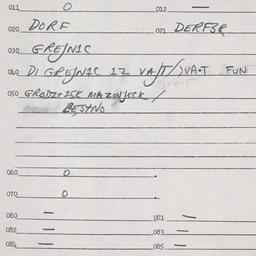 011 0 012 —
020 DORF 021 DERFSR
030 GREJNIC
040 DI GREJNIC IZ VAJT/)VA+T FUN
050 GRODZ+ISK MAZOVJECK /
BEJHNO
060 0
070 0
080 — 081 —
082 — 083 —
084 — 085 —